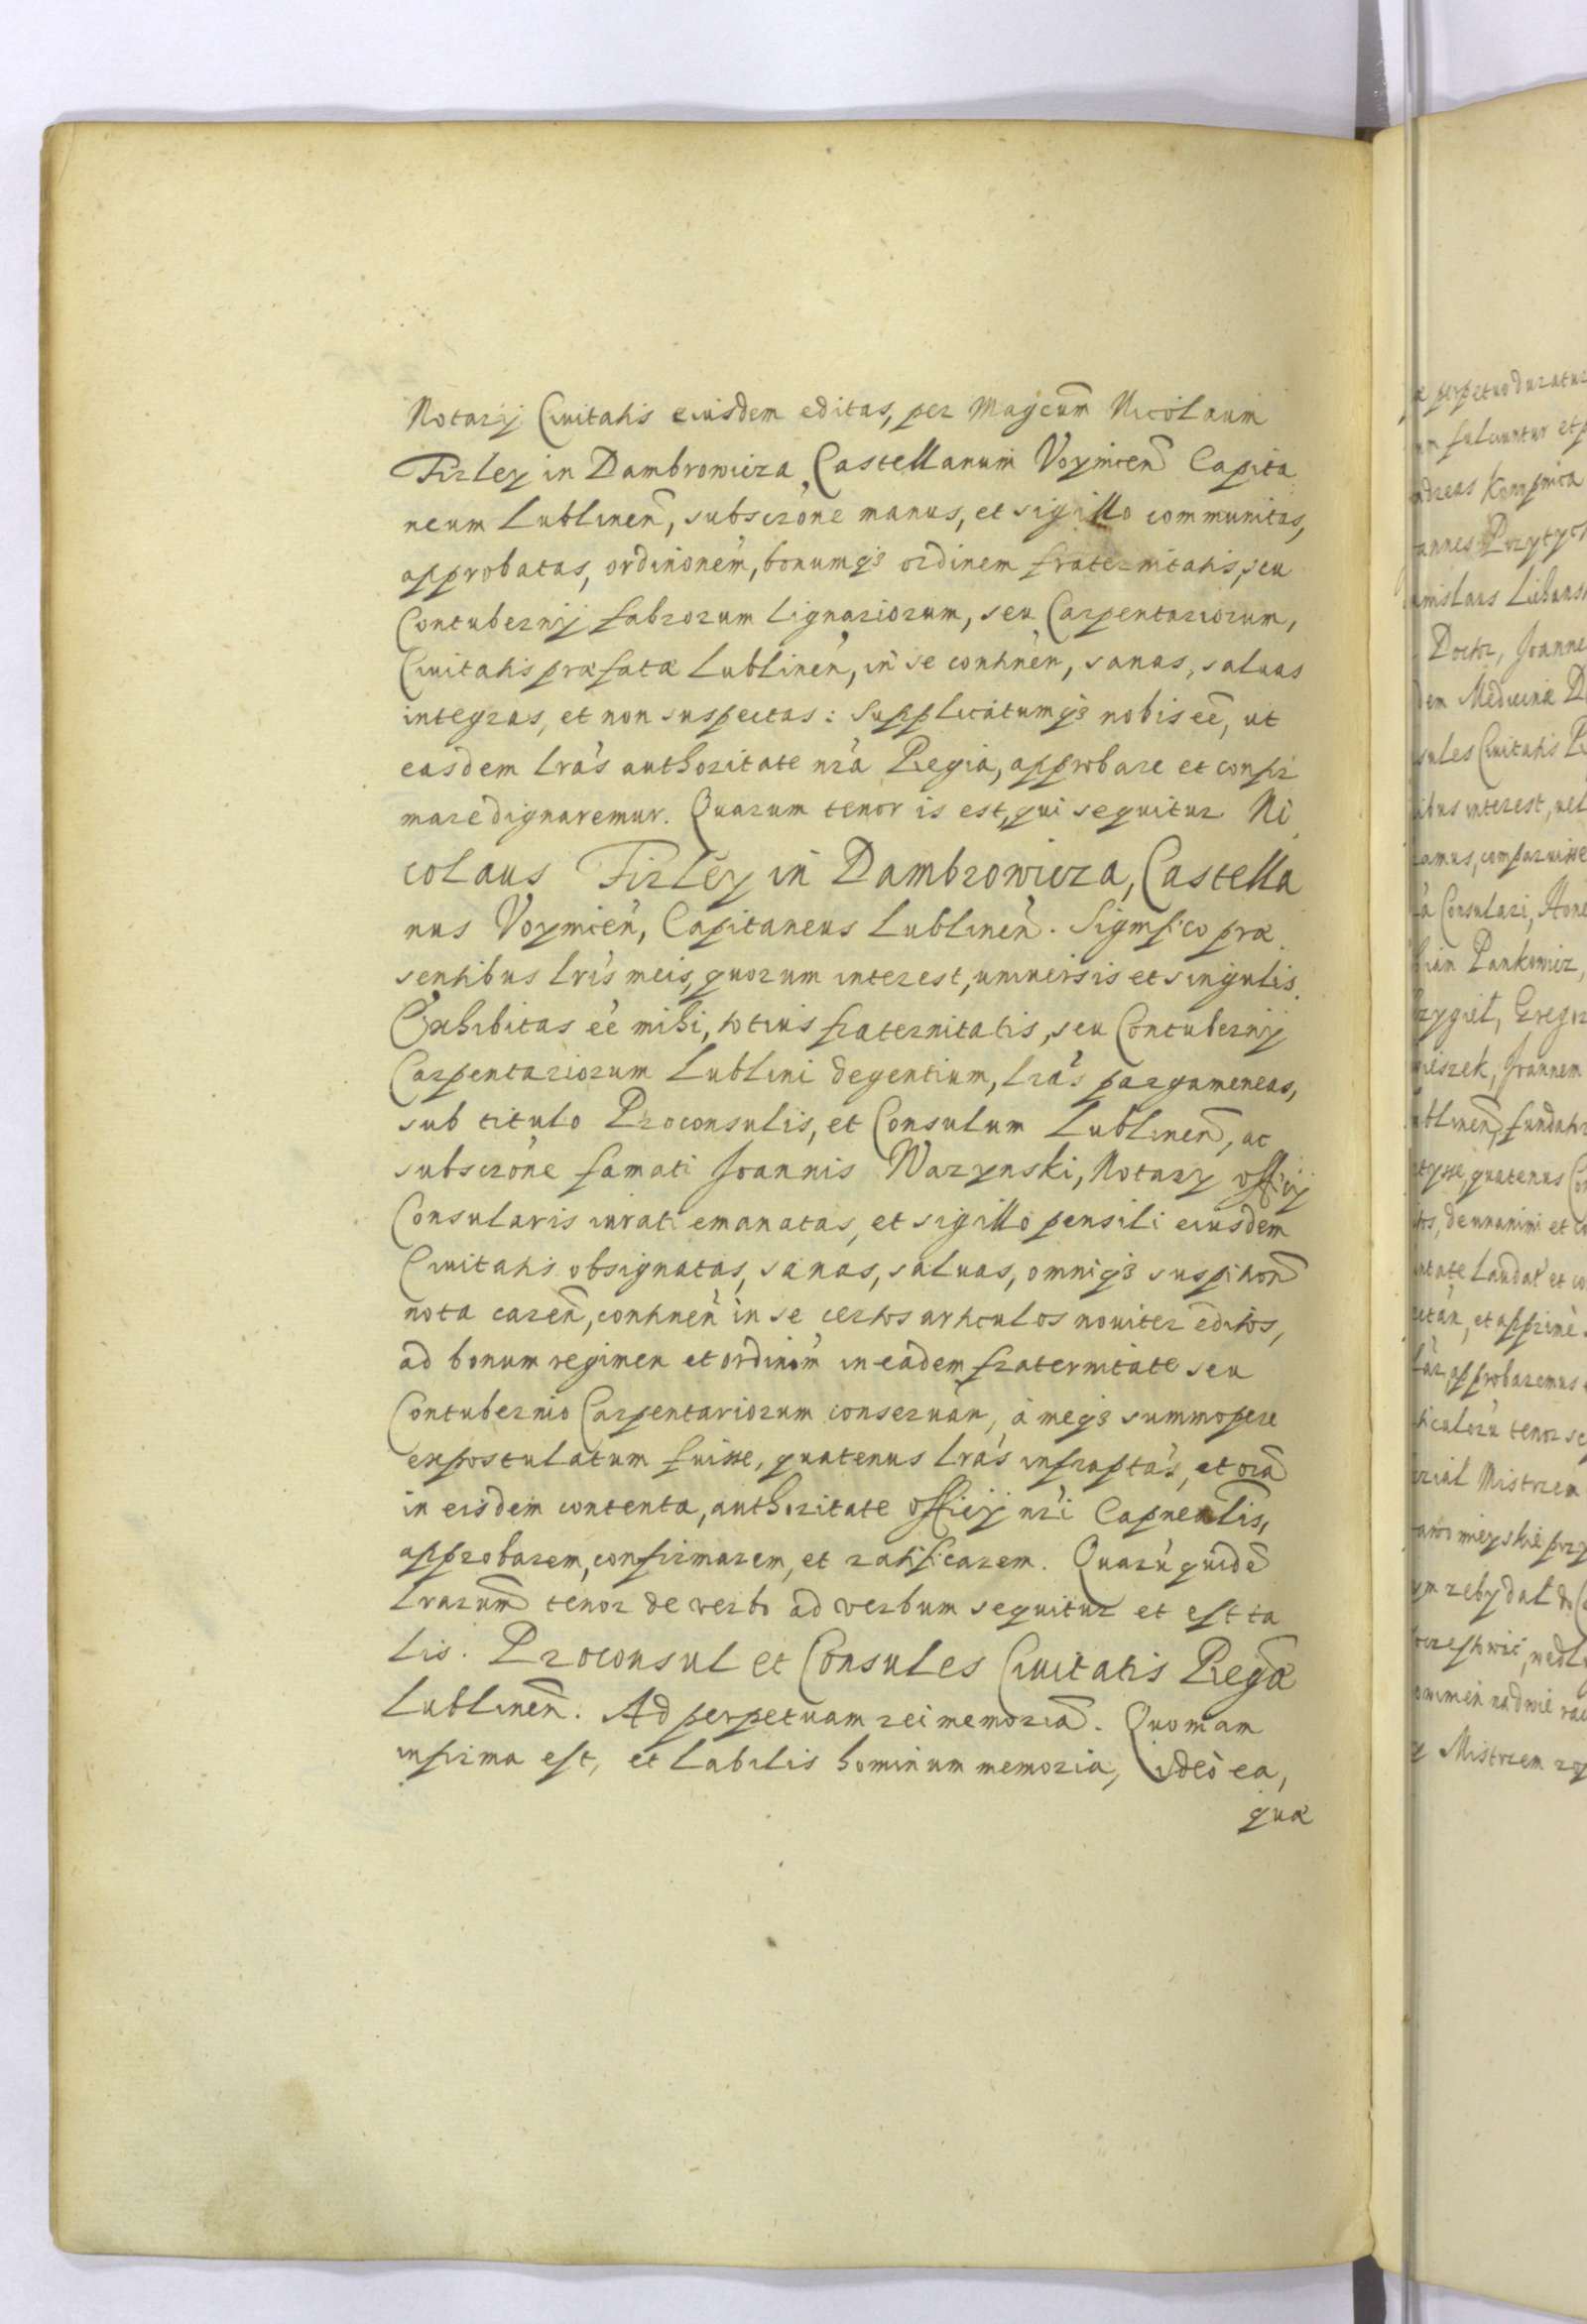 Notarij Ciuitatis eiusdem editas, per Magcum̃ Nicolaum
Firley in Dambrowicza, Castellanum Voynicen̄ Capita
neum Lublinen̄, subscrone manus, et sigillo communitas,
approbatas, ordinonem, bonumqȝ ordinem fraternitatis, seu
Contubernij fabrorum lignariorum, seu Carpentariorum,
Ciuitatis præfatæ Lublinen̄, in se continen̄, sanas, saluas
integras, et non suspectas: Supplicatumqȝ nobis eē, ut
easdem lrás authoritate nrá Regia, approbare et confir
mare dignaremur. Quarum tenor is est, qui sequitur Ni
colaus Firley in Dambrowicza, Castella
nus Voynicen̄, Capitaneus Lublinen̄. Significo præ
sentibus lrís meis, quorum interest, uniuersis et singulis.
Exhibitas eé mihi, totius fraternitatis, seu Contubernij
Carpentariorum Lublini degentium, lrás pargameneas,
sub titulo Proconsulis, et Consulum Lublinen̄, ac
subscrone famati Joannis Warzynski, Notary officij
Consularis iurati emanatas, et sigillo pensili eiusdem
Ciuitatis obsignatas, sanas, saluas, omniqȝ suspition̄
nota caren̄, continen̄ in se certos articulos nouiter editos,
ad bonum regimen et ordinem in eadem fraternitate seu
Contubernio Carpentariorum conseruan̄, à meqȝ summopere
expostulatum fuisse, quatenus lrás infraptás, et oīa
in eisdem contenta, authoritate officij nrí Capnealis,
approbarem, confirmarem, et ratificarem. Quarū quidē
lrarum̄ tenor de verbo ad verbum sequitur et est ta
lis. Proconsul et Consules Ciuitatis Regæ
Lublinen̄. Ad perpetuam rei memoriā. Quoniam
infirma est, et labilis hominum memoria, ideò ea,
quæ